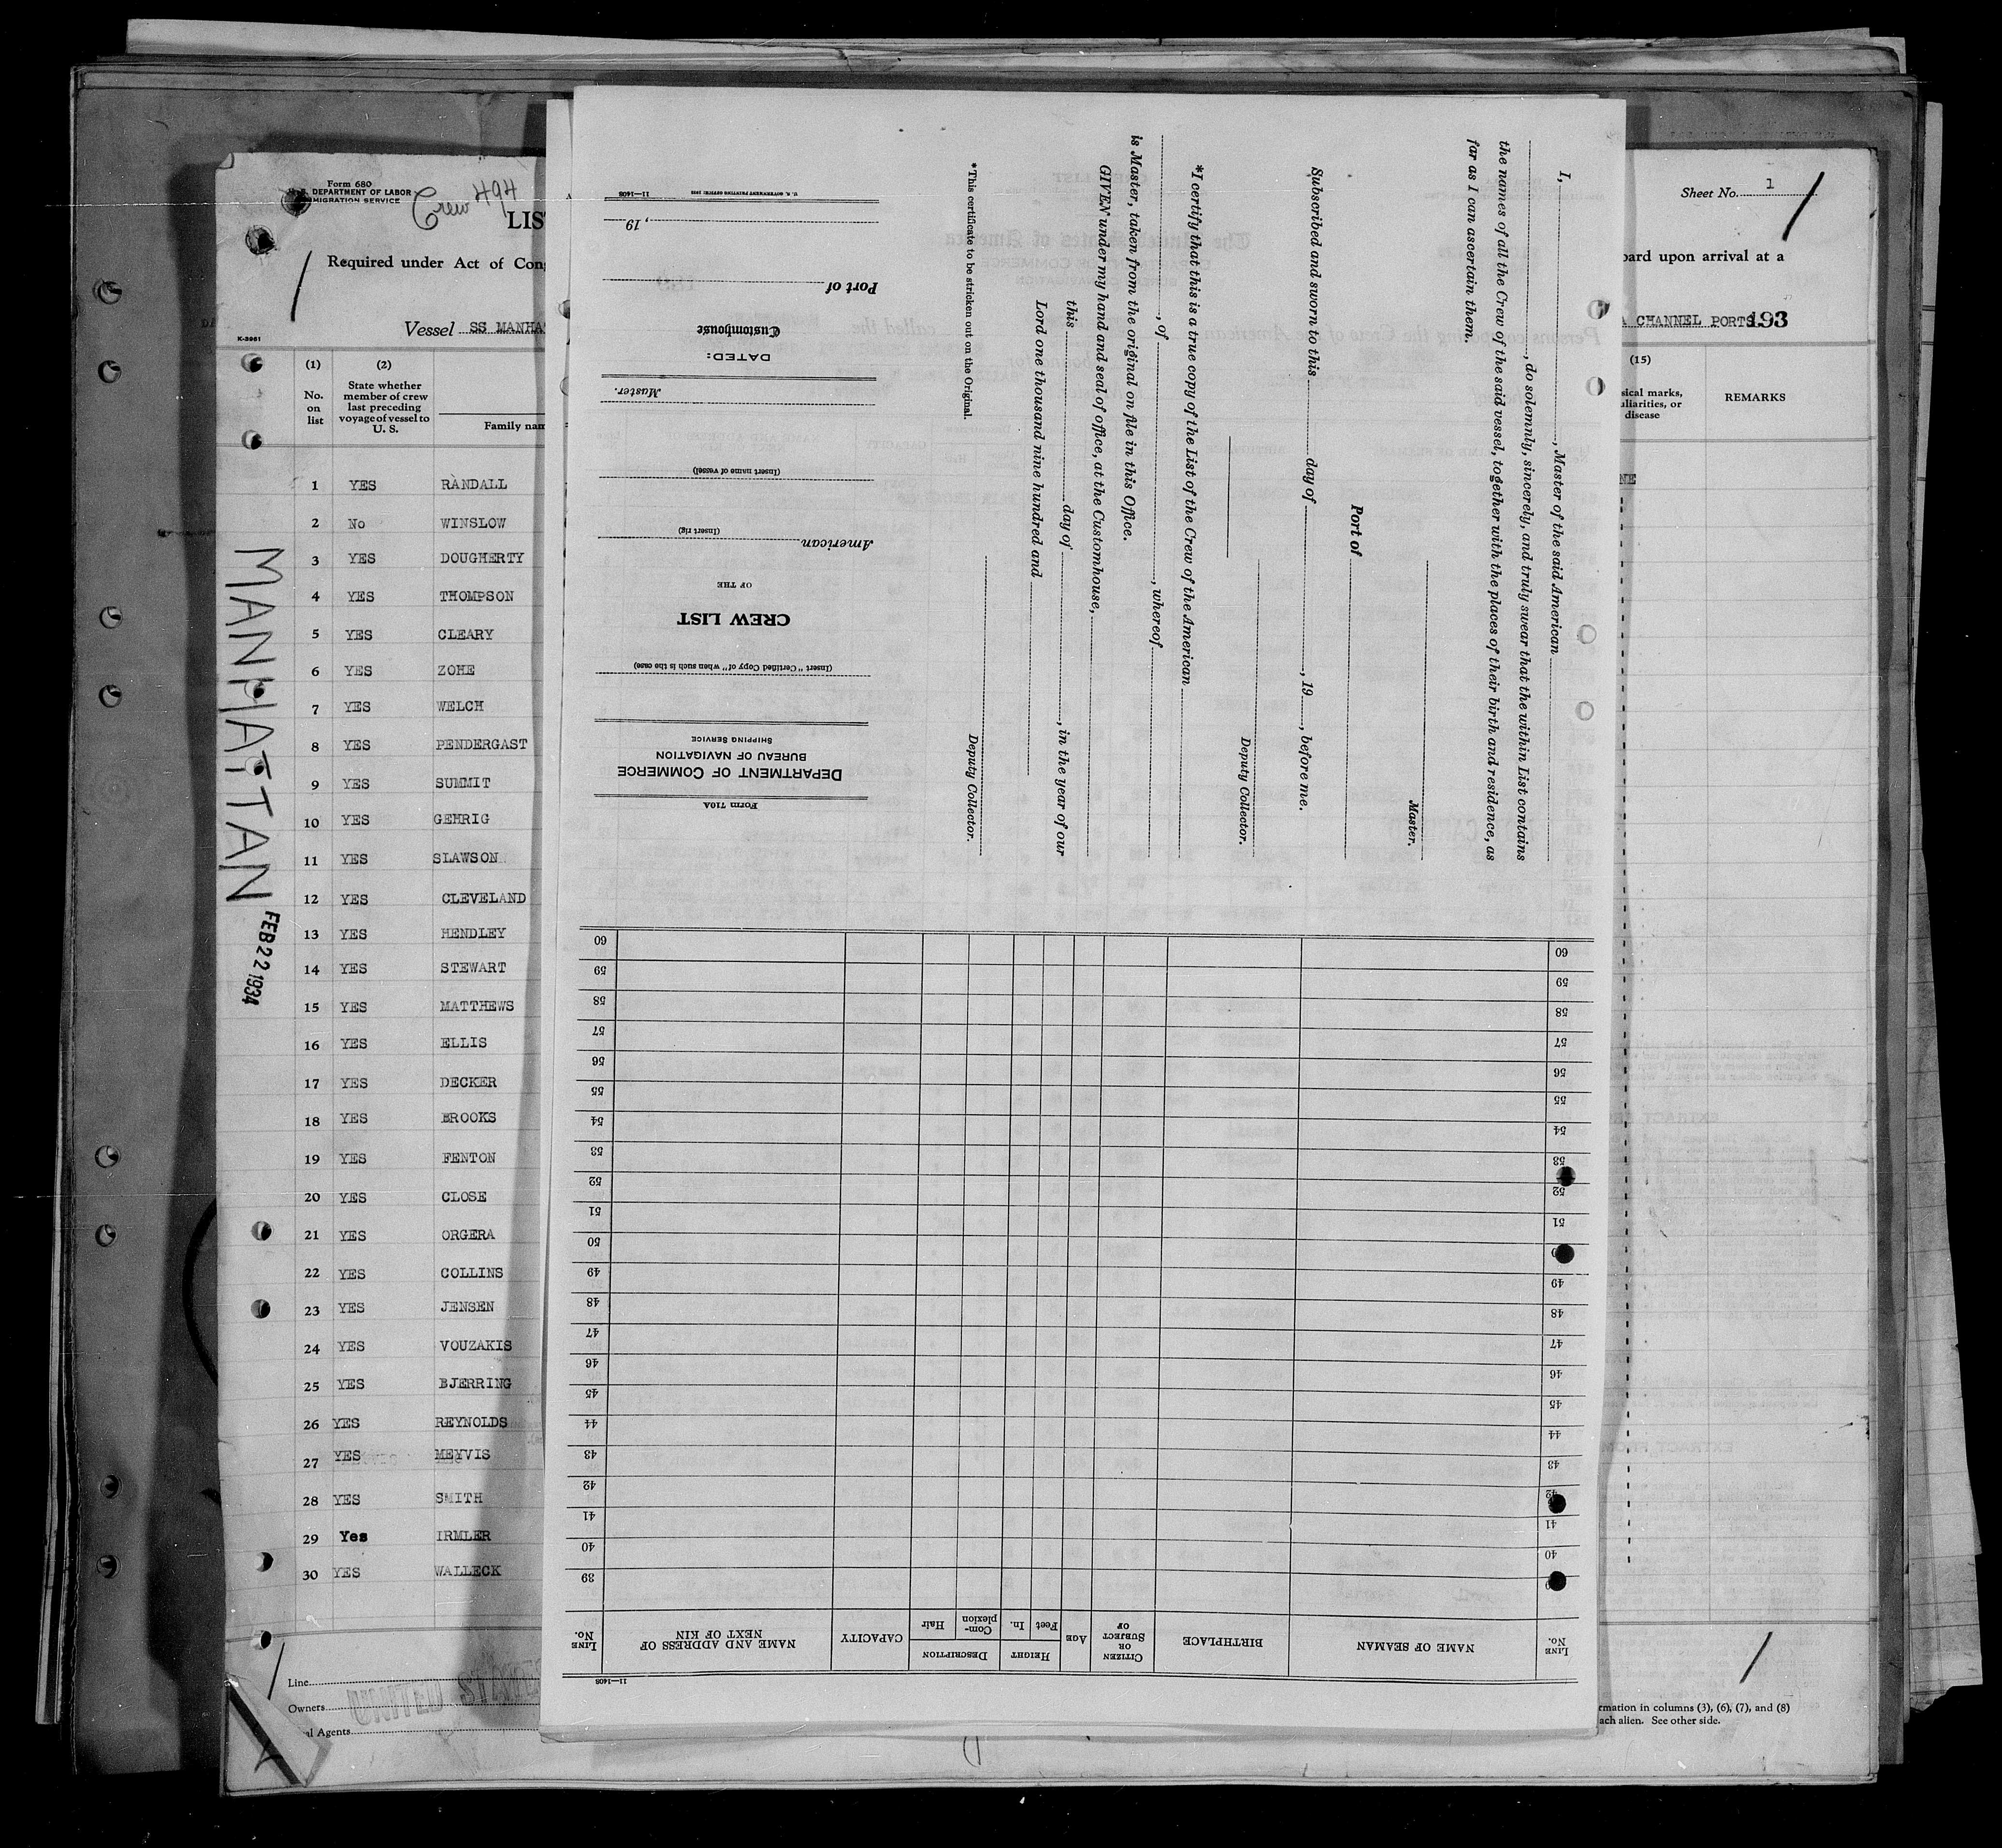 Form 680
DEPARTMENT OF LABOR
MIGRATION SERVICE
Crew 494
LIS
Required under Act of Con
Vessel SS MANHA
K-3961
(1) (2)
No. on list
State whether member of crew last preceding voyage of vessel to U. S.
Family nam
1 YES RANDALL
2 No WINSLOW
3 YES DOUGHERTY
4 YES THOMPSON
5 YES CLEARY
6 YES ZOHE
7 YES WELCH
8 YES PENDERGAST
9 YES SUMMIT
10 YES GEHRIG
11 YES SLAWSON
12 YES CLEVELAND
13 YES HENDLEY
14 YES STEWART
15 YES MATTHEWS
16 YES ELLIS
17 YES DECKER
18 YES BROOKS
19 YES FENTON
20 YES CLOSE
21 YES ORGERA
22 YES COLLINS
23 YES JENSEN
24 YES VOUZAKIS
25 YES BJERRING
26 YES REYNOLDS
27 YES MEYVIS
28 YES SMITH
29 Yes IRMLER
30 YES WALLECK
Line
Owners
al Agents
UNITED STATE
MANHATTAN
FEB 22 1934
Sheet No. 1
oard upon arrival at a
A CHANNEL PORTS 193
(15)
sical marks,
uliarities, or
disease
REMARKS
NE
rmation in columns (3), (6), (7), and (8)
ach alien. See other side.
I, , Master of the said American
, do solemnly, sincerely, and truly swear that the within List contains
the names of all the Crew of the said vessel, together with the places of their birth and residence, as
far as I can ascertain them.
Master.
Port of
Subscribed and sworn to this day of , 19 , before me.
Deputy Collector.
*I certify that this is a true copy of the List of the Crew of the American
, of , whereof
is Master, taken from the original on file in this Office.
GIVEN under my hand and seal of office, at the Customhouse,
this day of , in the year of our
Lord one thousand nine hundred and
Deputy Collector.
*This certificate to be stricken out on the Original.
Form 710A
DEPARTMENT OF COMMERCE
BUREAU OF NAVIGATION
SHIPPING SERVICE
(Insert "Certified Copy of" when such is the case)
CREW LIST
OF THE
American
(Insert rig)
(Insert name of vessel)
Master.
DATED:
Customhouse
Port of
, 19
11—1408
11—1408
LINE No.
NAME OF SEAMAN
BIRTHPLACE
CITIZEN OR SUBJECT OF
AGE
HEIGHT
Feet In.
DESCRIPTION
Complexion Hair
CAPACITY
NAME AND ADDRESS OF NEXT OF KIN
LINE No.
39
40 40
41 41
42 42
43 43
44 44
45 45
46 46
47 47
48 48
49 49
50
51 51
52 52
53 53
54 54
55 55
56 56
57 57
58 58
59 59
60 60